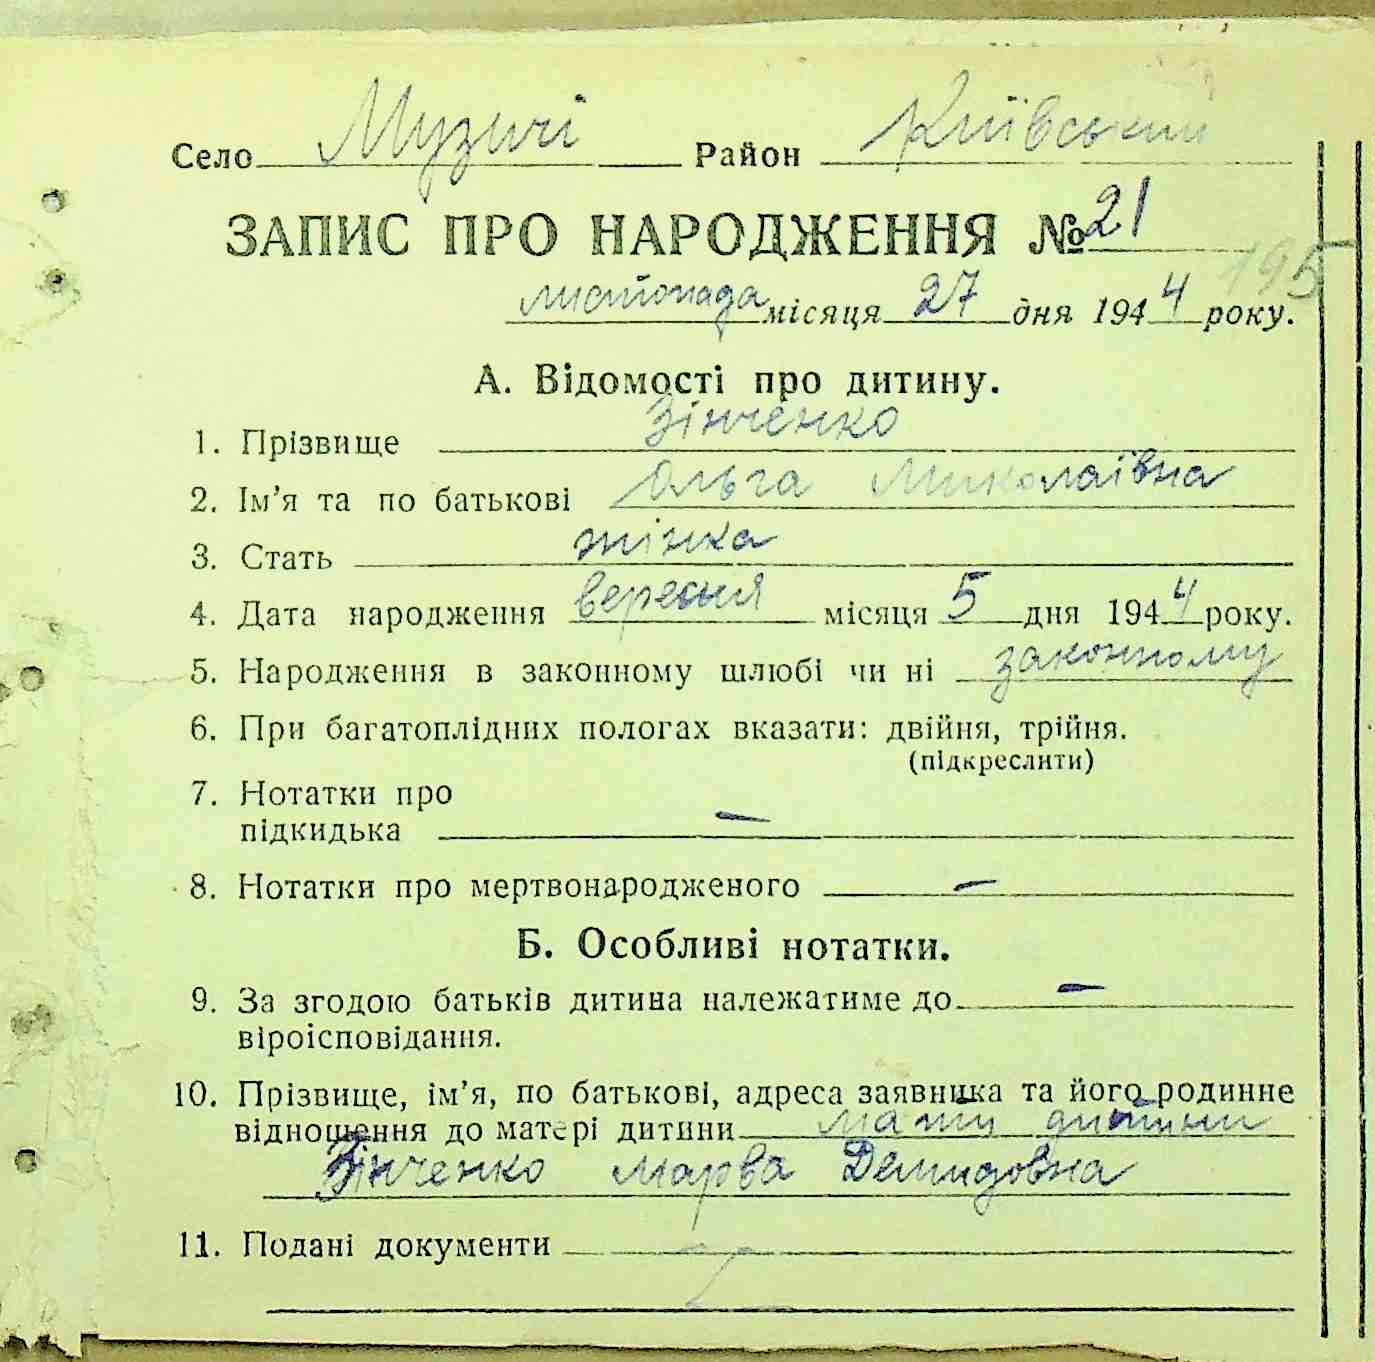 Село Музичі Район Київський
ЗАПИС ПРО НАРОДЖЕННЯ № 21
195
листопада місяця 27 дня 1944 року.
А. Відомості про дитину.
1. Прізвище Зінченко
2. Ім'я та по батькові Ольга Миколаївна
3. Стать жінка
4. Дата народження вересня місяця 5 дня 1944 року.
5. Народження в законному шлюбі чи ні законному
6. При багатоплідних пологах вказати: двійня, трійня.
(підкреслити)
7. Нотатки про
підкидька —
8. Нотатки про мертвонародженого —
Б. Особливі нотатки.
9. За згодою батьків дитина належатиме до —
віроісповідання.
10. Прізвище, ім'я, по батькові, адреса заявника та його родинне
відношення до матері дитини мати дитини
Зінченко Марва Демидовна
11. Подані документи